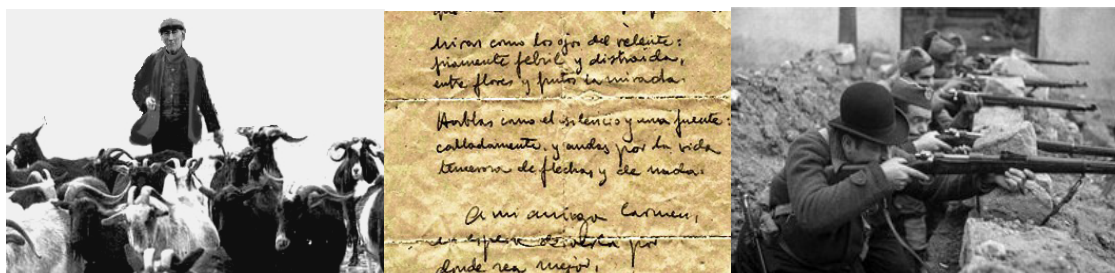 miras como los ojos del relente:
piamente febril y distraída,
entre flores y frutos la mirada.
Hablas como el silencio y una fuente:
calladamente, y andas por la vida
temerosa de flechas y de nada.
A mi amiga Carmen,
la esposa
por
donde sea mejor,